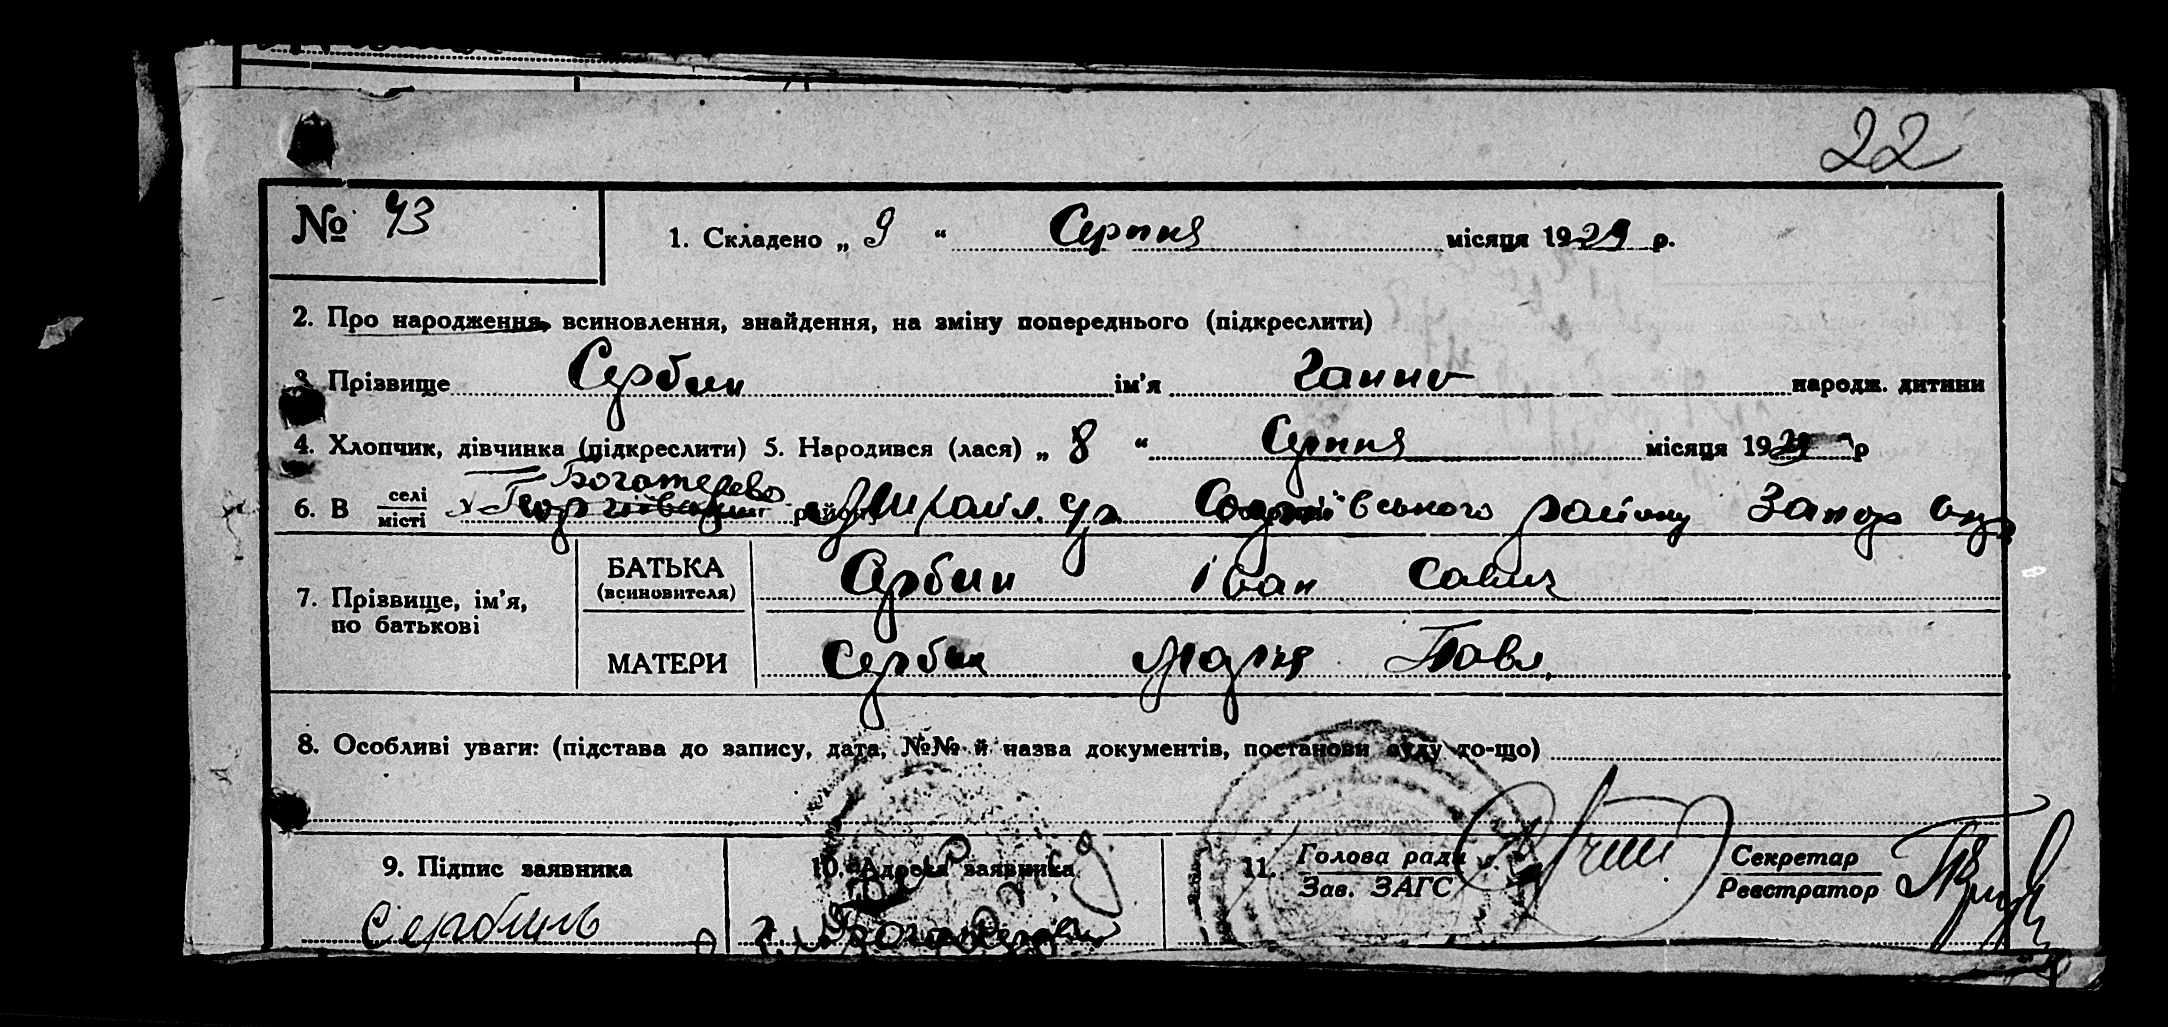 22
№ 43
1. Складено „ 9 “ Серпня місяця 1929 р.
2. Про народження, всиновлення, знайдення, на зміну попереднього (підкреслити)
3. Прізвище Сербин ім'я Ганна народж. дитини
4. Хлопчик, дівчинка (підкреслити) 5. Народився (лася) „ 8 “ Серпня місяця 1929 р
6. В селі місті Михайл. Софіївського району Запор окр
7. Прізвище, ім'я, по батькові
БАТЬКА (всиновителя) Сербин Іван Савич
МАТЕРИ Сербин Марія Павл.
8. Особливі уваги: (підстава до запису, дата, №№ й назва документів, постанови суду то-що)
9. Підпис заявника
10. Адреса заявника
11. Голова ради Зав. ЗАГС
Секретар Реєстратор
Сербинь